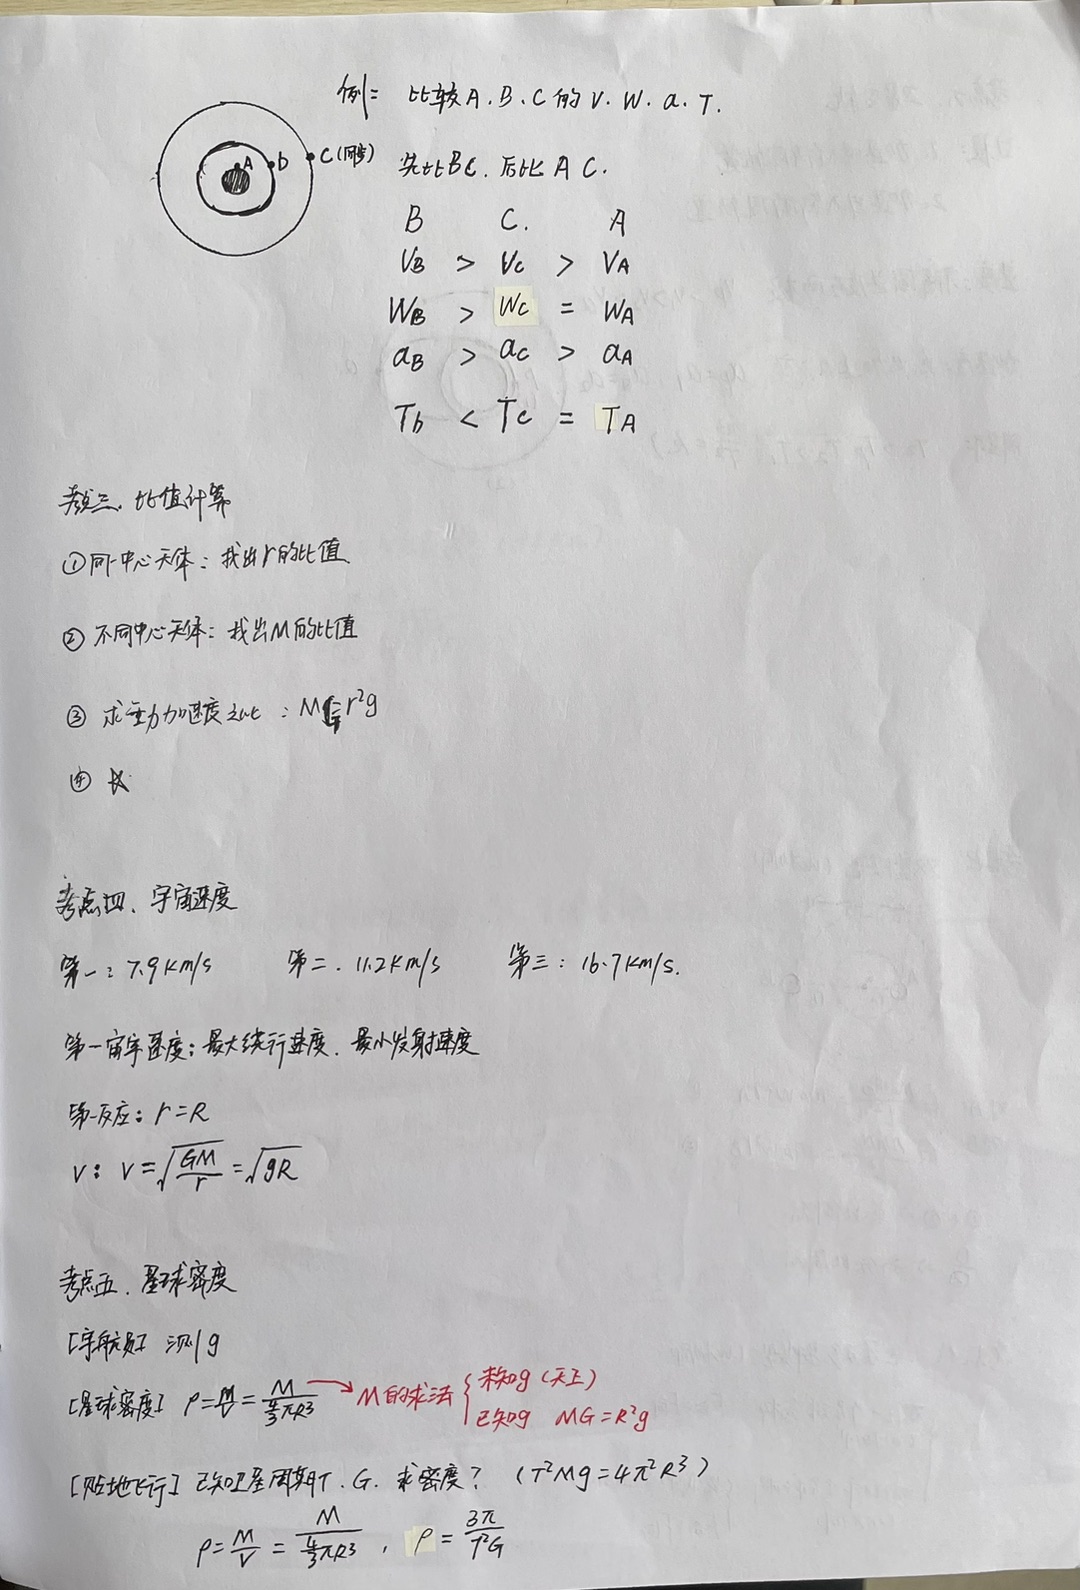 例= 比较A.B.C的V.W.a.T.
A b C(同步)
先比BC.后比AC.
B C. A
VB > Vc > VA
WB > Wc = WA
aB > ac > aA
Tb < Tc = TA
考点三.比值计算
①同一中心天体:找出r的比值
②不同中心天体:找出M的比值
③求重力加速度之比:MG=r²g
④
考点四.宇宙速度
第一:7.9km/s 第二.11.2km/s 第三:16.7km/s.
第一宙宇速度:最大绕行速度.最小发射速度
第一反应:r=R
v:v=√(GM/r)=√gR
考点五.星球密度
[宇航员]测g
[星球密度]ρ=M/V=M/(4/3πR³)→M的求法{未知g(天上)
已知g MG=R²g
[贴地飞行]已知卫星周期T.G.求密度?(T²Mg=4π²R³)
ρ=M/V=M/(4/3πR³),ρ=3π/T²G